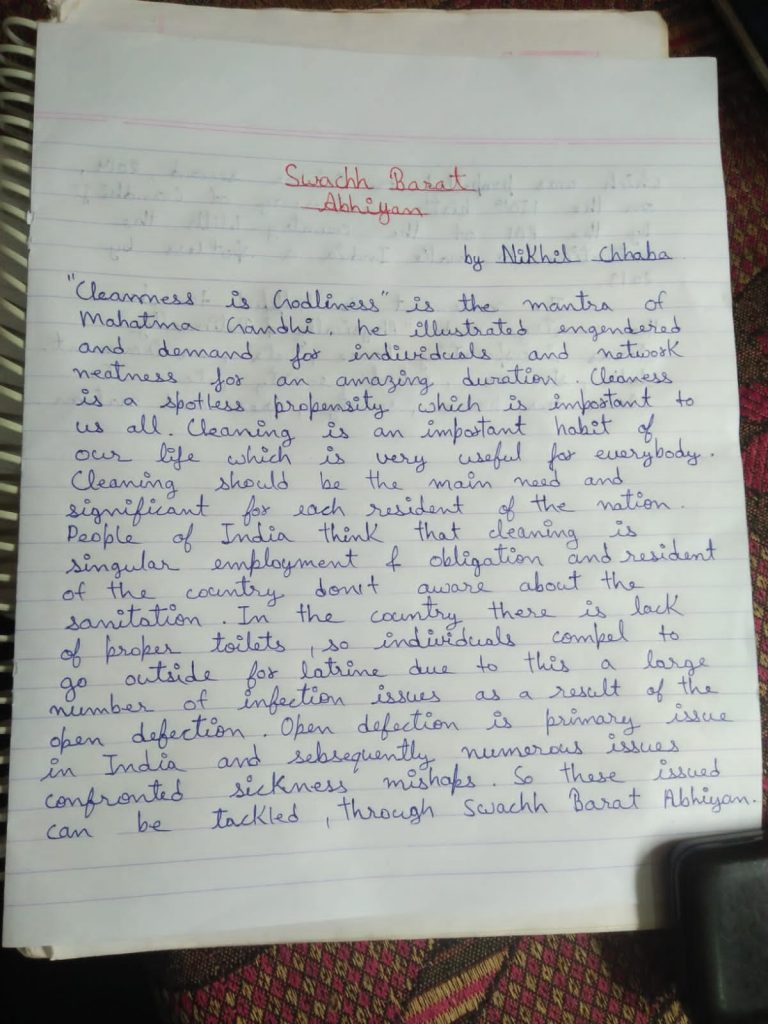 Swachh Barat
Abhiyan
by Nikhil Chhaba
"Cleanness is Godliness" is the mantra of
Mahatma Gandhi. he illustrated engendered
and demand for individuals and network
neatness for an amazing duration. Cleaness
is a spotless propensity which is important to
us all. Cleaning is an important habit of
our life which is very useful for everybody.
Cleaning should be the main need and
significant for each resident of the nation.
People of India think that cleaning is
singular employment & obligation and resident
of the country don't aware about the
sanitation. In the country there is lack
of proper toilets, so individuals compel to
go outside for latrine due to this a large
number of infection issues as a result of the
open defection. Open defection is primary issue
in India and sebsequently numerous issues
confronted sickness mishaps. So these issued
can be tackled, through Swachh Barat Abhiyan.